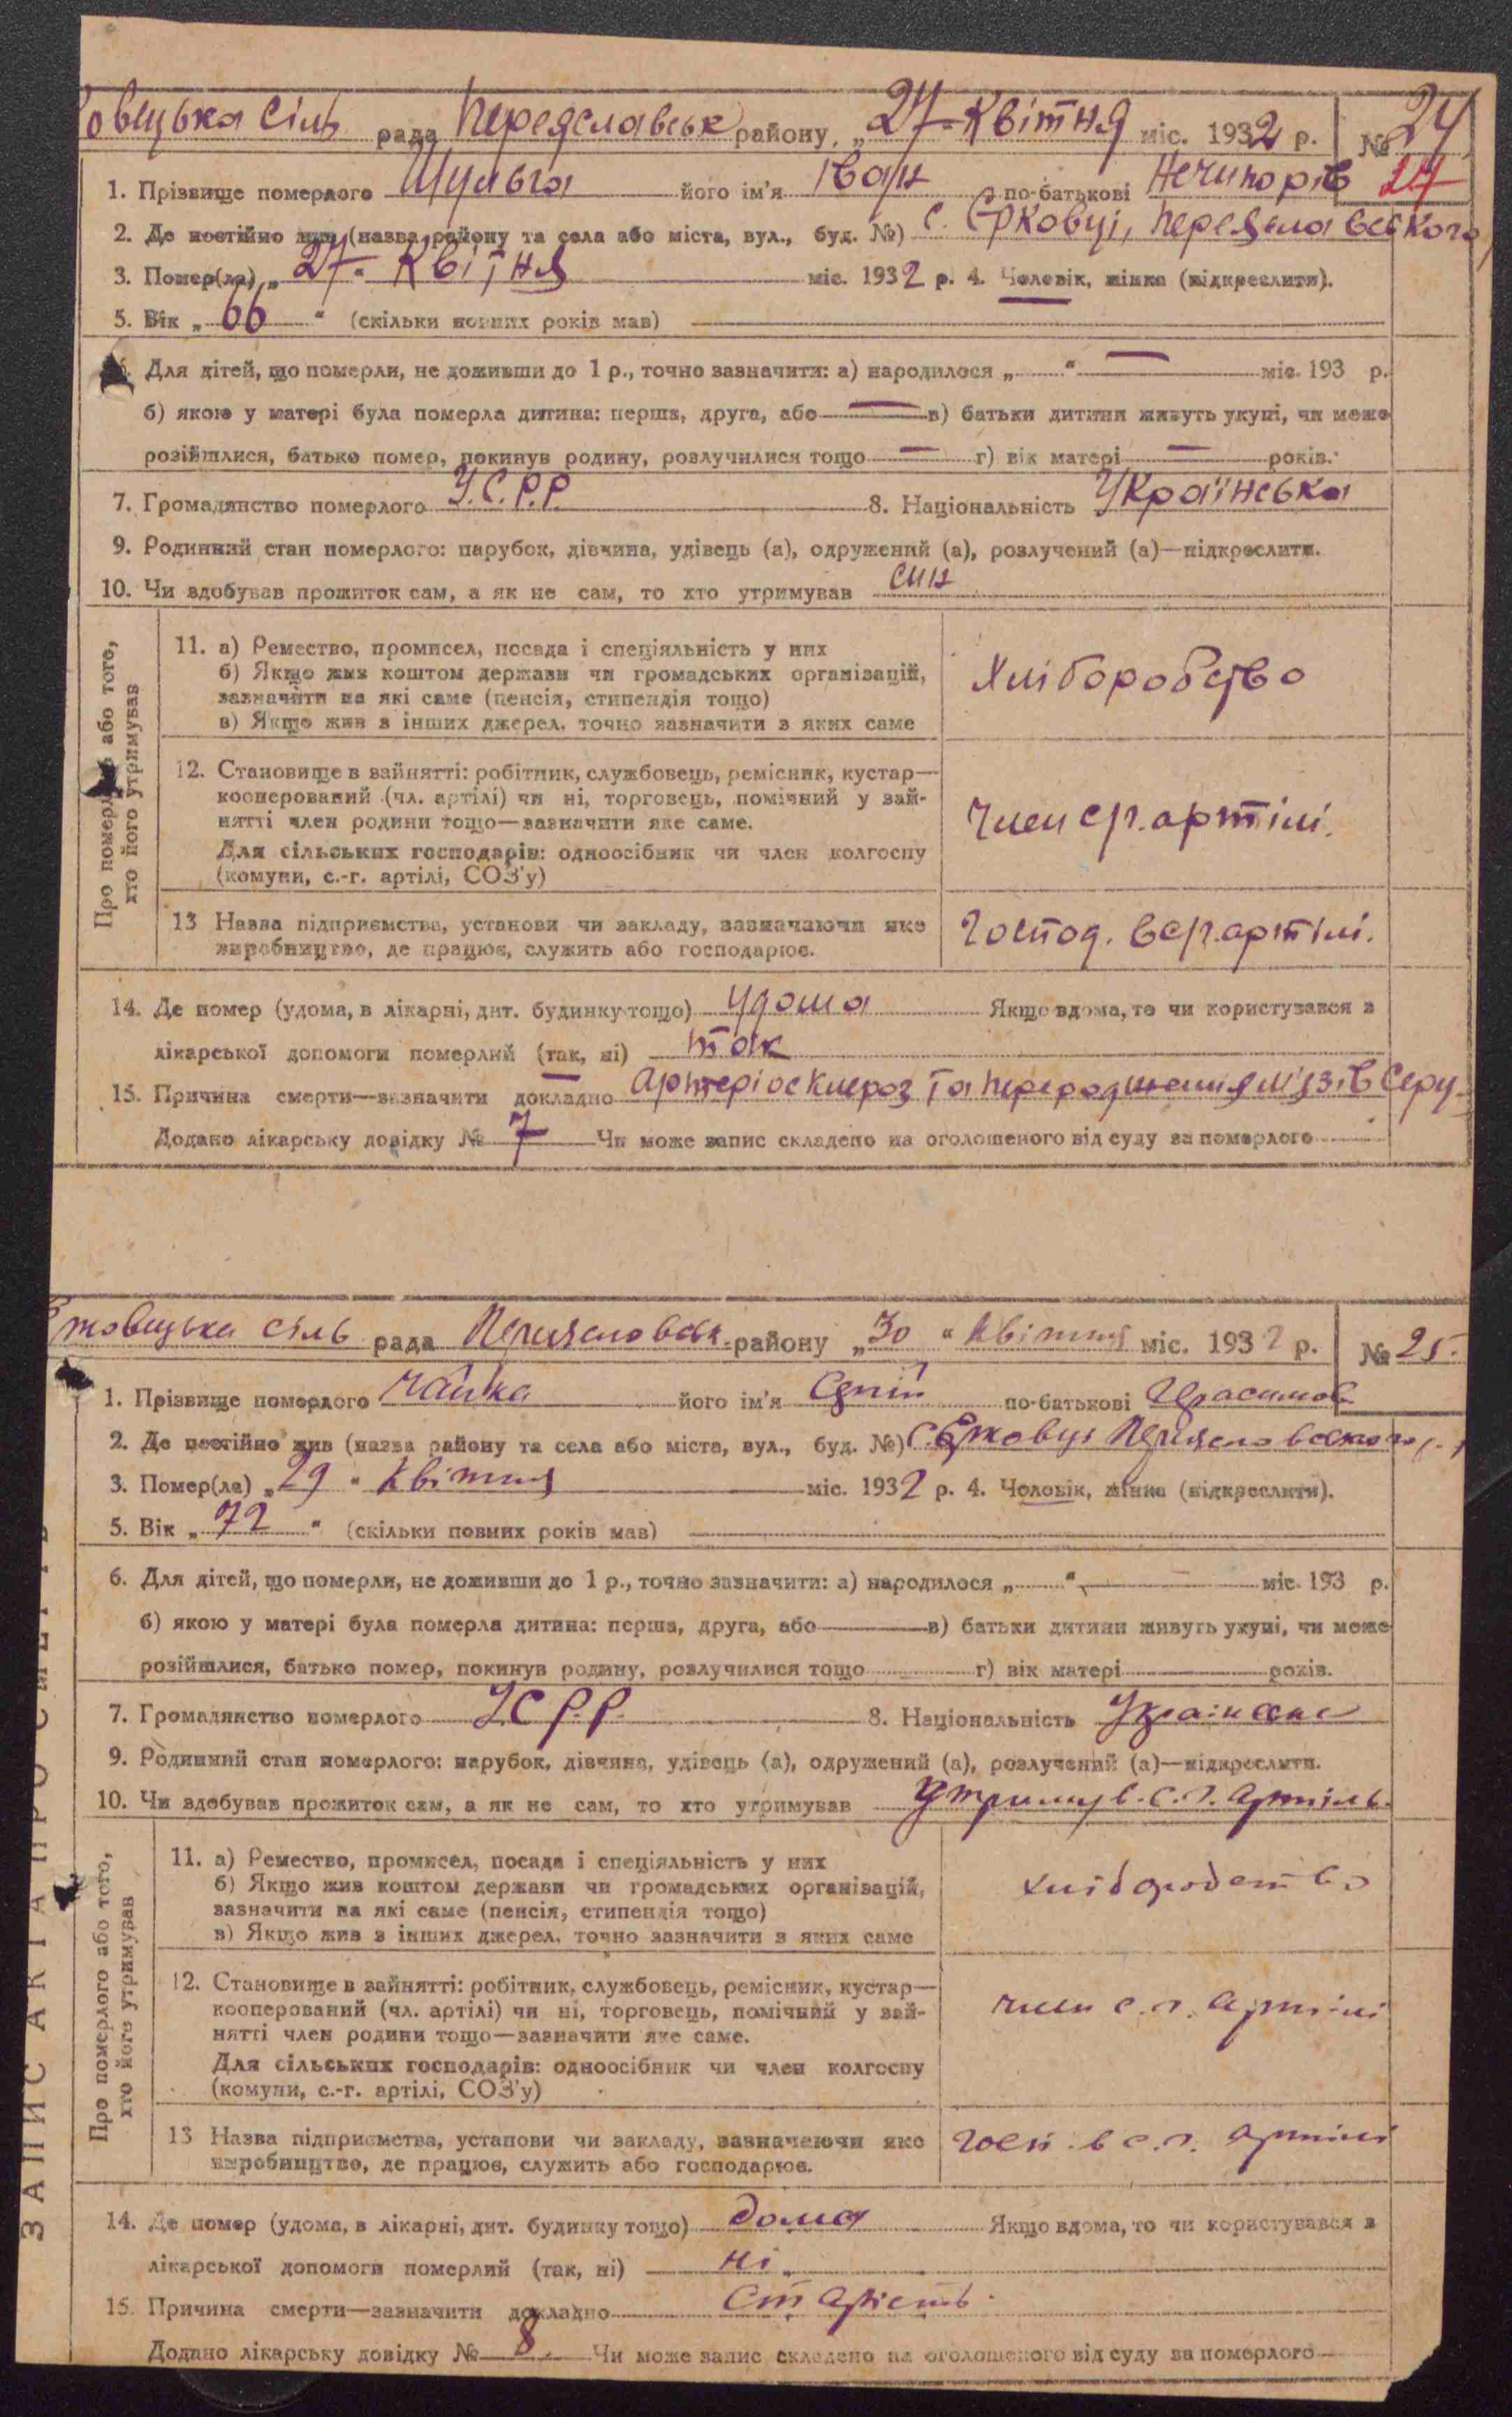 овецька сіль рада Переяславськ району, „27" Квітня міс. 1932 р. № 24
1. Прізвище померлого Шульга його ім'я Іван по-батькові Нечипорів 24
2. Де постійно жив (назва району та села або міста, вул., буд. №) с. Єрковці, Переяславського
3. Помер(ла) „27" Квітня міс. 1932 р. 4. Чоловік, жінка (підкреслити).
5. Вік „66" (скільки повних років мав)
6. Для дітей, що померли, не доживши до 1 р., точно зазначити: а) народилося „ " — міс. 193 р.
б) якою у матері була померла дитина: перша, друга, або — в) батьки дитини живуть укупі, чи може
розійшлися, батько помер, покинув родину, розлучилися тощо — г) вік матері — років.
7. Громадянство померлого У.С.Р.Р. 8. Національність Українська
9. Родинний стан померлого: парубок, дівчина, удівець (а), одружений (а), розлучений (а)—підкреслити.
10. Чи здобував прожиток сам, а як не сам, то хто утримував син
Про померлого або того,
хто його утримував
11. а) Ремество, промисел, посада і спеціяльність у них
б) Якщо жив коштом держави чи громадських організацій,
зазначити на які саме (пенсія, стипендія тощо)
в) Якщо жив з інших джерел, точно зазначити з яких саме
Хліборобство
12. Становище в зайнятті: робітник, службовець, ремісник, кустар—
кооперований (чл. артілі) чи ні, торговець, помічний у зай-
нятті член родини тощо—зазначити яке саме.
Для сільських господарів: одноосібник чи член колгоспу
(комуни, с.-г. артілі, СОЗ'у)
Член с/г. артілі.
13 Назва підприємства, установи чи закладу, зазначаючи яке
виробництво, де працює, служить або господарює.
Господ. в с/г. артілі.
14. Де помер (удома, в лікарні, дит. будинку тощо) удома Якщо вдома, то чи користувався з
лікарської допомоги померлий (так, ні) так
15. Причина смерти—зазначити докладно Артеріосклероз та переродження м'язів серц
Додано лікарську довідку № 7 Чи може запис складено на оголошеного від суду за померлого
ковецька сіль рада Переяславськ. району „30" Квітня міс. 1932 р. № 25.
1. Прізвище померлого Чайка його ім'я по-батькові Герасимов
2. Де постійно жив (назва району та села або міста, вул., буд. №) с. Єрковці Переяславського р.
3. Помер(ла) „29" Квітня міс. 1932 р. 4. Чоловік, жінка (підкреслити).
5. Вік „72" (скільки повних років мав)
6. Для дітей, що померли, не доживши до 1 р., точно зазначити: а) народилося „ " міс. 193 р.
б) якою у матері була померла дитина: перша, друга, або в) батьки дитини живуть укупі, чи може
розійшлися, батько помер, покинув родину, розлучилися тощо г) вік матері років.
7. Громадянство померлого УСРР. 8. Національність Українська
9. Родинний стан померлого: парубок, дівчина, удівець (а), одружений (а), розлучений (а)—підкреслити.
10. Чи здобував прожиток сам, а як не сам, то хто утримував Утримув. с. г. артіль.
Про померлого або того,
хто його утримував
11. а) Ремество, промисел, посада і спеціяльність у них
б) Якщо жив коштом держави чи громадських організацій,
зазначити на які саме (пенсія, стипендія тощо)
в) Якщо жив з інших джерел, точно зазначити з яких саме
хліборобство
12. Становище в зайнятті: робітник, службовець, ремісник, кустар—
кооперований (чл. артілі) чи ні, торговець, помічний у зай-
нятті член родини тощо—зазначити яке саме.
Для сільських господарів: одноосібник чи член колгоспу
(комуни, с.-г. артілі, СОЗ'у)
член с. г. артілі
13 Назва підприємства, установи чи закладу, зазначаючи яке
виробництво, де працює, служить або господарює.
Госп. в с. г. артілі
14. Де помер (удома, в лікарні, дит. будинку тощо) дома Якщо вдома, то чи користувався з
лікарської допомоги померлий (так, ні) ні
15. Причина смерти—зазначити докладно Старість.
Додано лікарську довідку № 8. Чи може запис складено на оголошеного від суду за померлого
ЗАПИС АКТА ПРО СМЕРТЬ